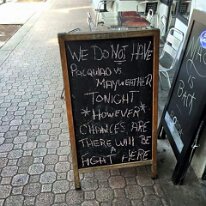 WE DO NOT HAVE
PACQUIAO VS
MAYWEATHER
TONIGHT
*HOWEVER*
CHANCES ARE
THERE WILL BE
A FIGHT HERE